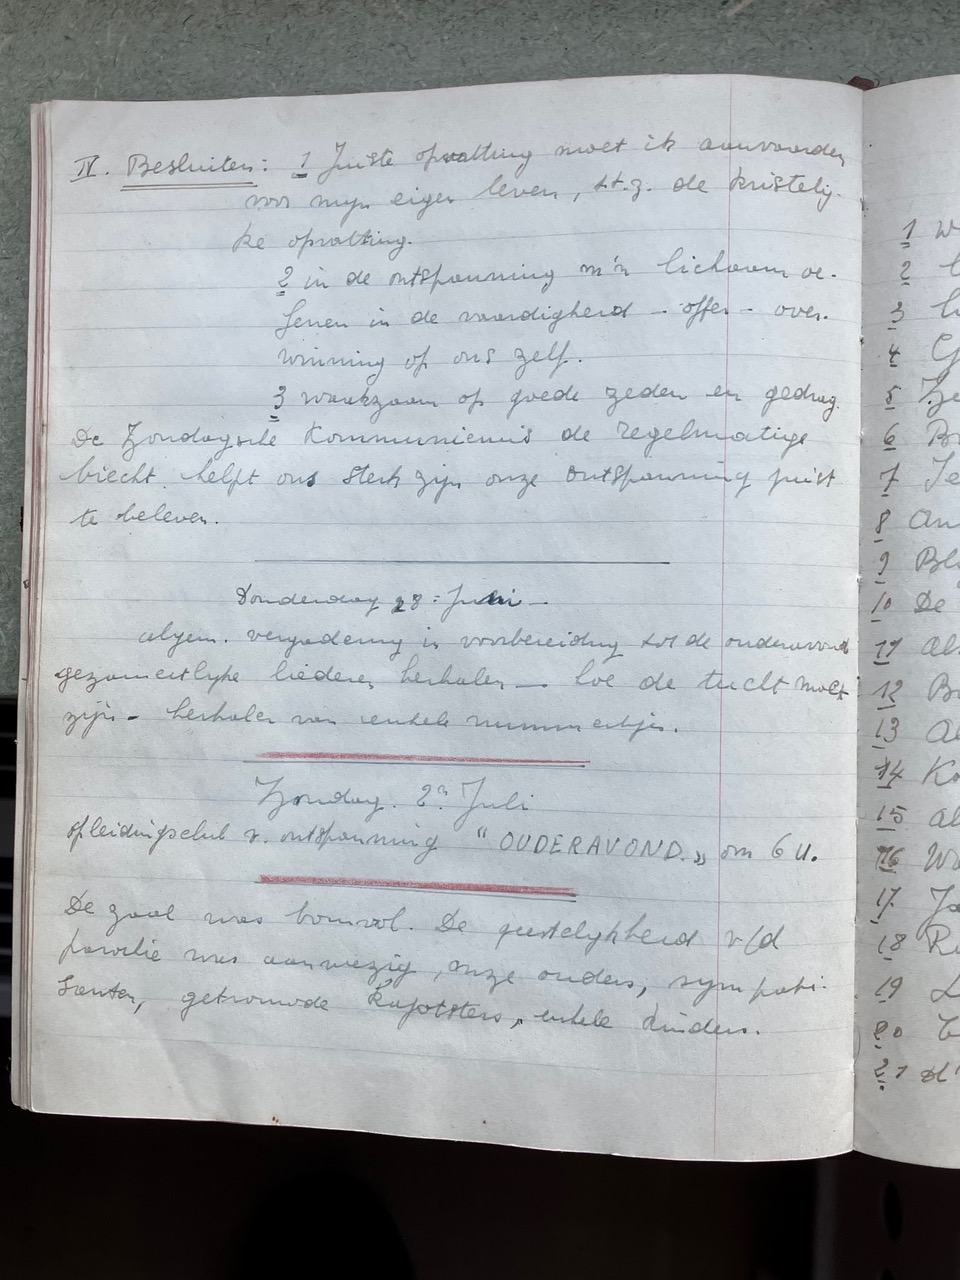 IV. Besluiten: 1 Juiste opvatting moet ik aanvaarden
voor mijn eigen leven, d.z. de kristelij-
ke opvatting.
2 in de ontspanning m'n lichaam oe-
fenen in de vaardigheid - offer - over-
winning op ons zelf.
3 waakzaam op goede zeden en gedrag.
De Zondagsche Kommuniemis de regelmatige
biecht helpt ons sterk zijn onze ontspanning juist
te beleven.
Donderdag 28: Juni -
algem. vergadering in voorbereiding tot de ouderavond
gezamentlijke liederen herhalen - hoe de tucht moet
zijn - herhalen van enkele nummertjes.
Zondag. 2n Juli
opleidingsclub v. ontspanning "OUDERAVOND." om 6 u.
De zaal was bomvol. De geestelijkheid v/d
parochie was aanwezig, onze ouders, sympati-
santen, getrouwde Kajotsters, enkele kinders.
1 W
2
3
4
5 Ze
6 Bo
7 Je
8 An
9 Ble
10 De
11 Al
12 Bo
13 Al
14 Ko
15 al
16 Wa
17 Ja
18 Ro
19
20
21